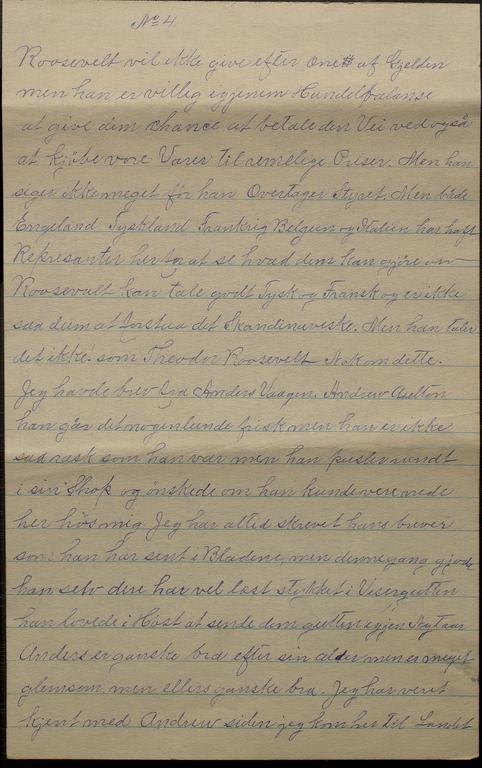 No 4
Roosevelt vil ikke give efter One¢ af Gjelden
men han er villig igjenem Handelbalanse
at give dem chance at betale den Vei ved også
at kjöbe vore Varer til remelige Priser. Men han
siger ikke meget før han Overtager Styret. Men både
Engeland Tyskland Frankrig Belgien og Italien har haft
Represanter her for at se hvad dem kan gjöre
Roosevalt kan tale godt Tysk og Fransk og er ikke
saa dum at forstaa det Skandinaveske. Men han taler
det ikke som Theodor Roosevelt Nok om dette.
Jeg havde brev fra Anders Vaagen. Andrew
han går det nogenlunde frisk men han er ikke
saa rask som han var men han pusler rundt
i sin Shop og ønskede om han kunde vere nede
her hös mig Jeg har altid skrevet hans brever
som han har sent i Bladene, men denne gang gjorde
han selv dere har vel læst stykket i Visergutten
han lovede i Höst at sende dem gutten igjen Nytaar
Anders er ganske bra efter sin alder men er meget
glemsom, men ellers ganske bra. Jeg har veret
kjent med Andrew siden jeg kom her til Landet